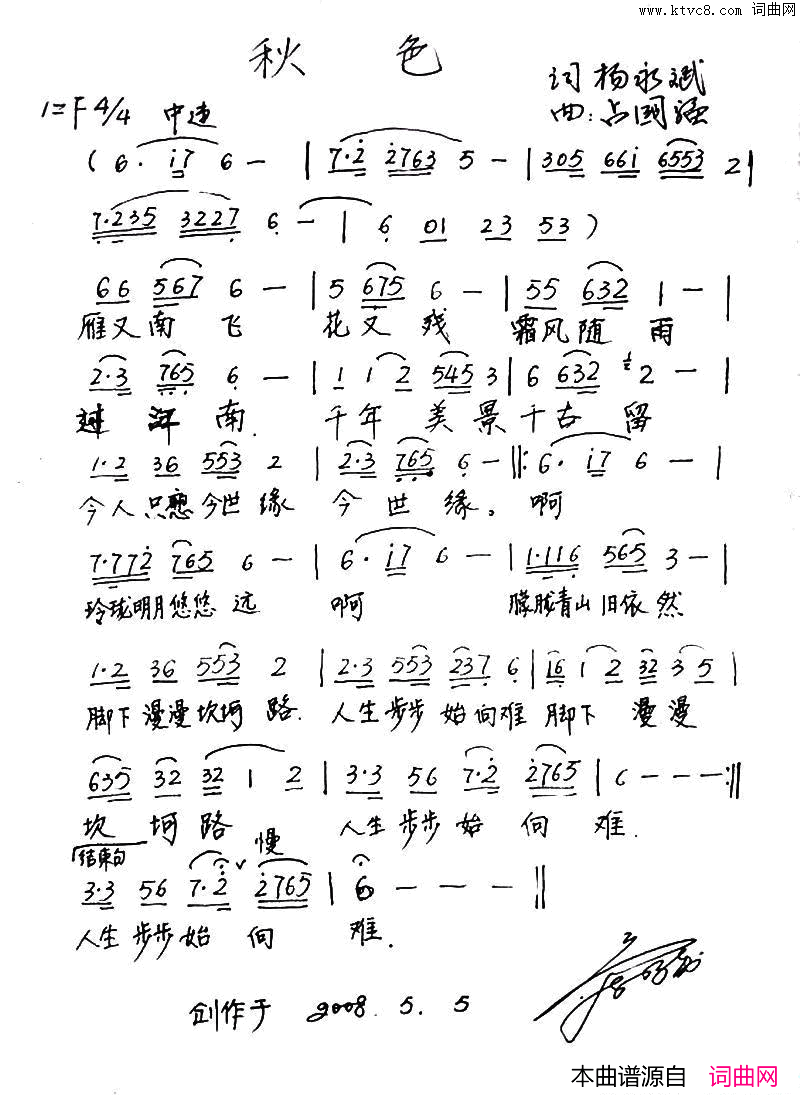 www.ktvc8.com 词曲网
秋 色
词 杨永斌
1=F 4/4 中速
曲:占國强
(6· i7 6 — | 7·2 2763 5 — | 305 66i 6553 2 |
7·235 3227 6 — | 6 01 23 53 )
66 567 6 — | 5 675 6 — | 55 632 1 — |
雁又南飞 花又残 霜风随雨
2·3 765 6 — | 1 1 2 545 3 | 6 632 2 — |
过江南. 千年美景千古留
1·2 36 553 2 | 2·3 765 6 — |: 6· i7 6 — |
今人只愿今世缘 今世缘。啊
7·772 765 6 — | 6· i7 6 — | 1·116 565 3 — |
玲珑明月悠悠远 啊 朦胧青山旧依然
1·2 36 553 2 | 2·3 553 237 6 | 16 1 2 32 3 5 |
脚下漫漫坎坷路. 人生步步始向难 脚下漫漫
635 32 32 1 2 | 3·3 56 7·2 2765 | 6 — — — :||
坎坷路 人生步步始向难.
结束句 慢
3·3 56 7·2 2765 | 6 — — — ||
人生步步始向难.
创作于 2008.5.5
本曲谱源自 词曲网